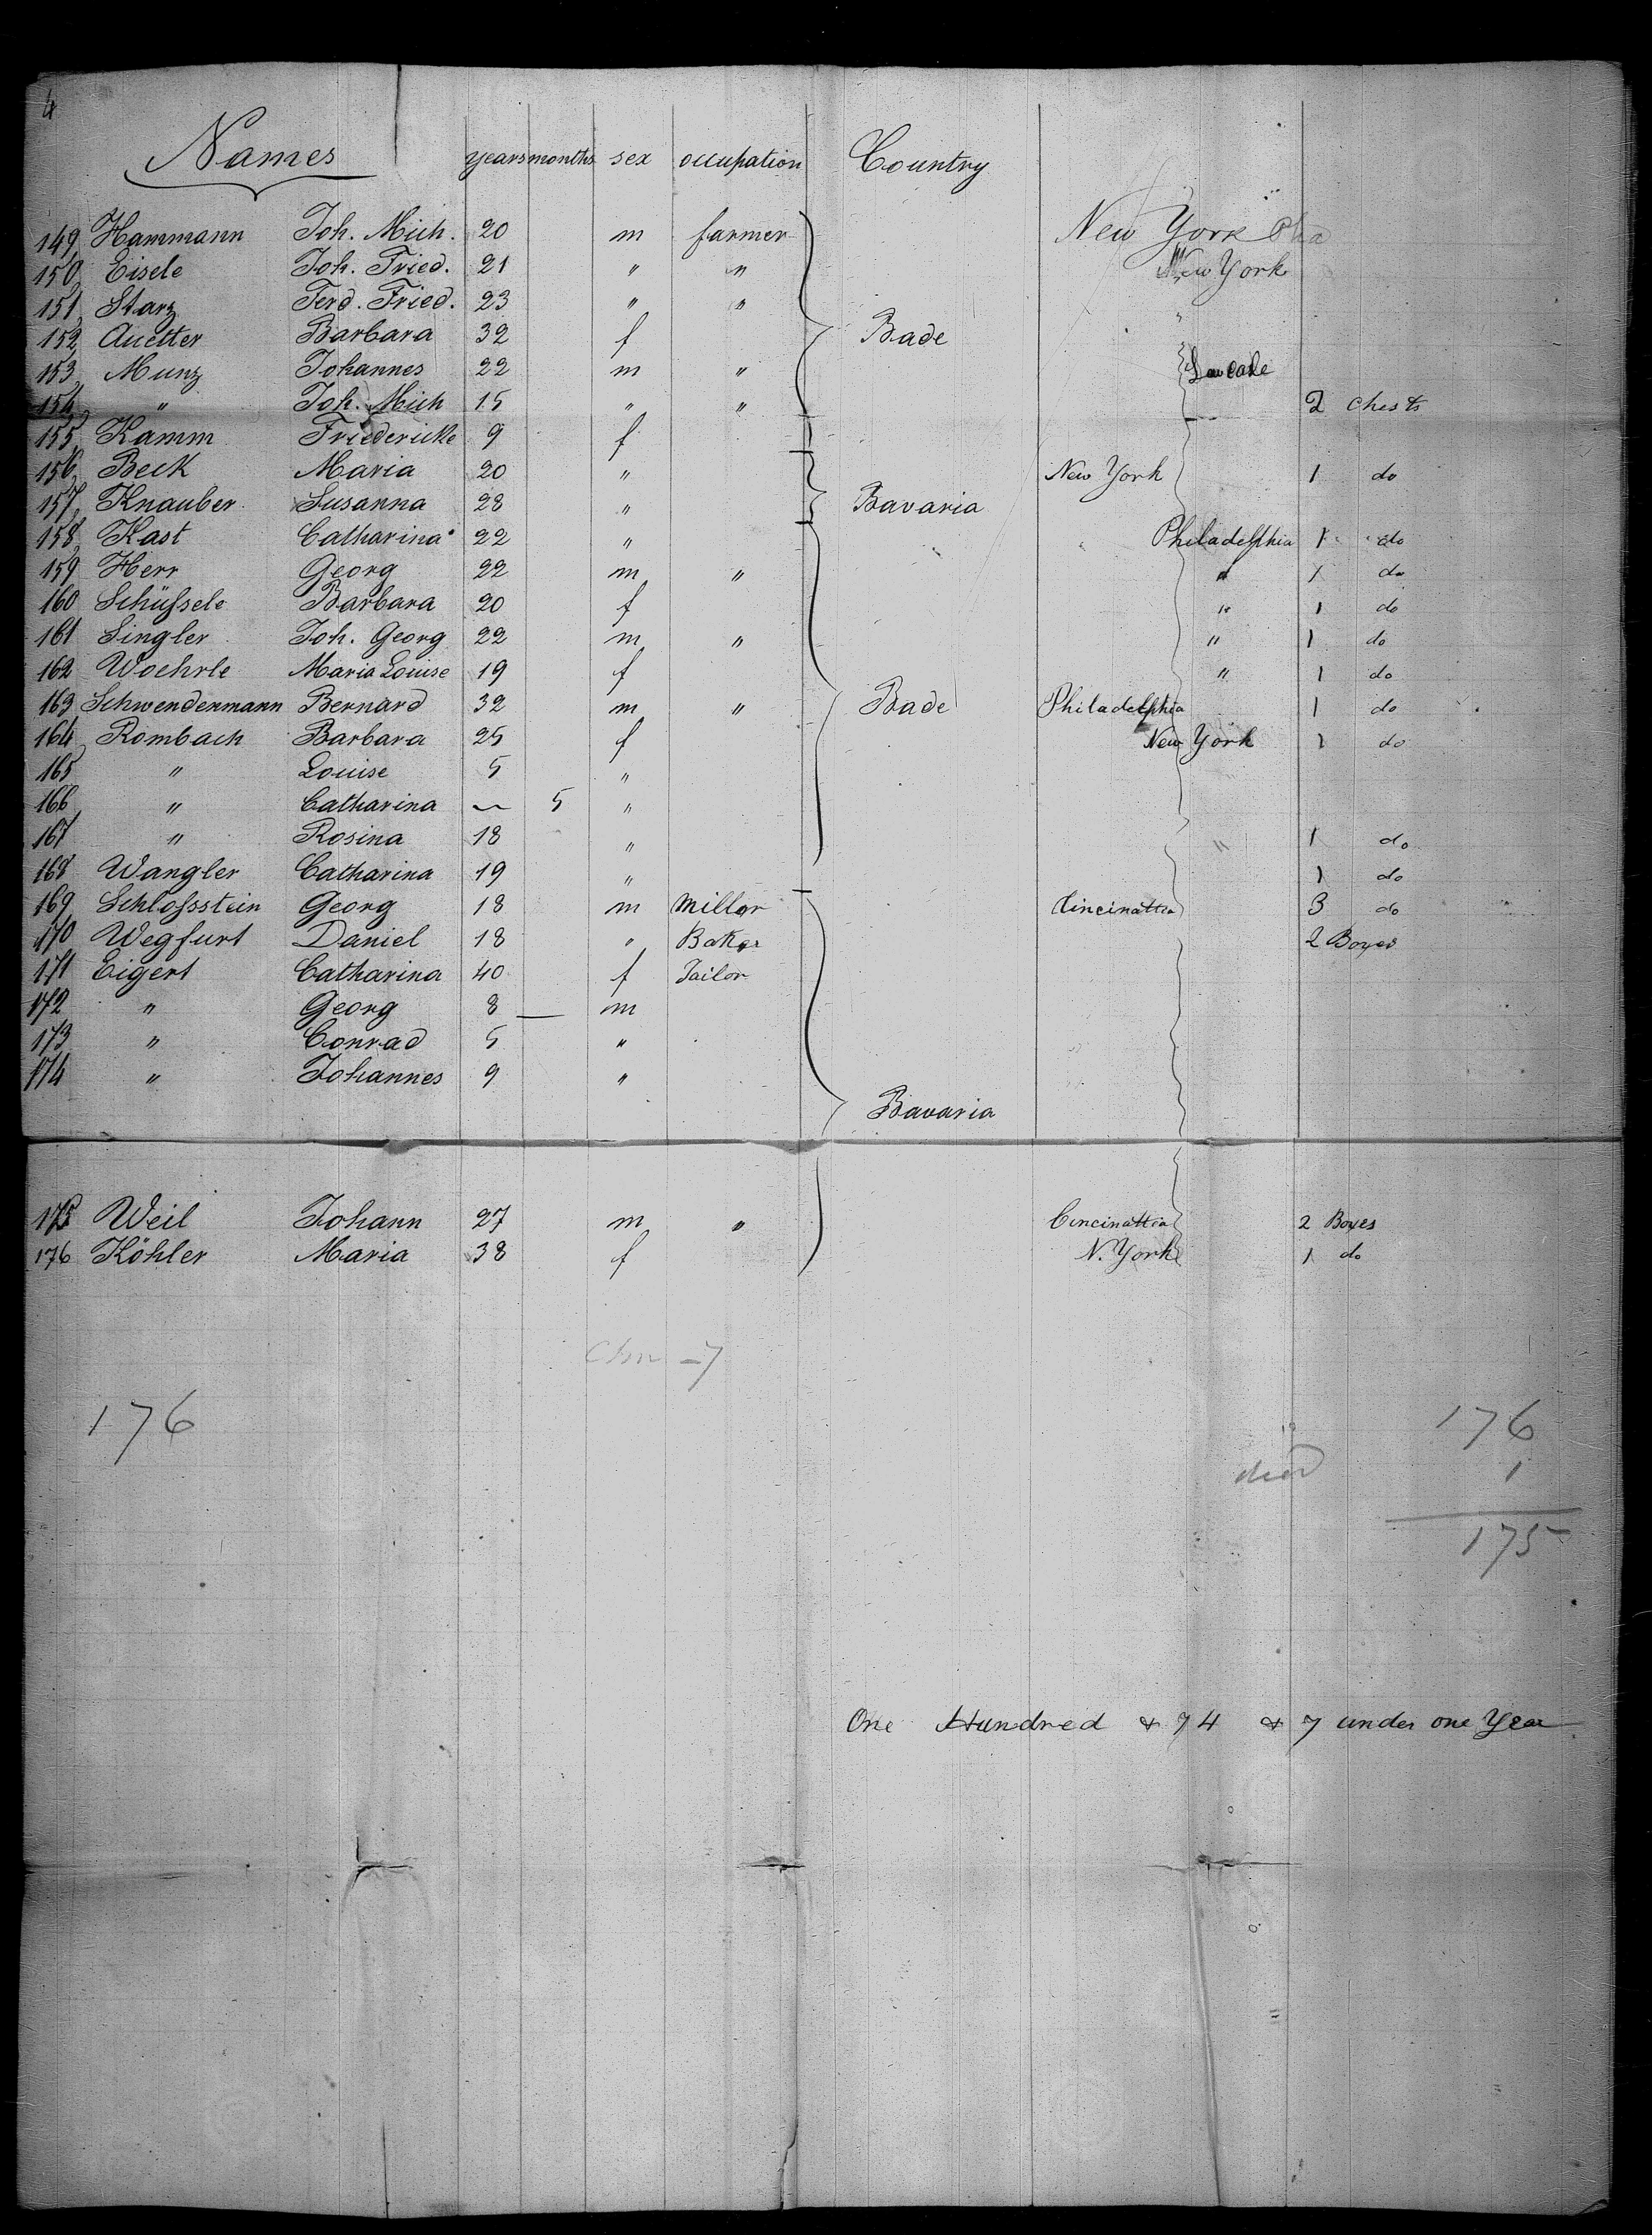 4
Names years months sex occupation Country
149 Hammann Joh. Mich. 20 m farmer New York
150 Eisele Joh. Fried. 21 " " New York
151 Starz Ferd. Fried. 23 " " "
152 Auetter Barbara 32 f Bade
153 Munz Johannes 22 m "
154 " Joh. Mich 15 " " 2 chests
155 Kamm Friedericke 9 f
156 Beck Maria 20 " New York 1 do
157 Knauber Susanna 28 " Bavaria
158 Kast Catharina 22 " Philadelphia 1 do
159 Herr Georg 22 m " " 1 do
160 Schüssele Barbara 20 f " 1 do
161 Singler Joh. Georg 22 m " " 1 do
162 Woehrle Maria Louise 19 f " 1 do
163 Schwendenmann Bernard 32 m " Bade Philadelphia 1 do
164 Rombach Barbara 25 f New York 1 do
165 " Louise 5 "
166 " Catharina — 5 "
167 " Rosina 18 " " 1 do
168 Wangler Catharina 19 " 1 do
169 Schlossstein Georg 18 m Miller Cincinattia 3 do
170 Wegfurt Daniel 18 " Baker 2 Boxes
171 Eigert Catharina 40 f Tailor
172 " Georg 8 — m
173 " Conrad 5 "
174 " Johannes 9 "
Bavaria
175 Weil Johann 27 m " Cincinattia 2 Boxes
176 Köhler Maria 38 f N. York 1 do
Chn - 7
176 176
died 1
175
One Hundred & 74 & 7 under one Year